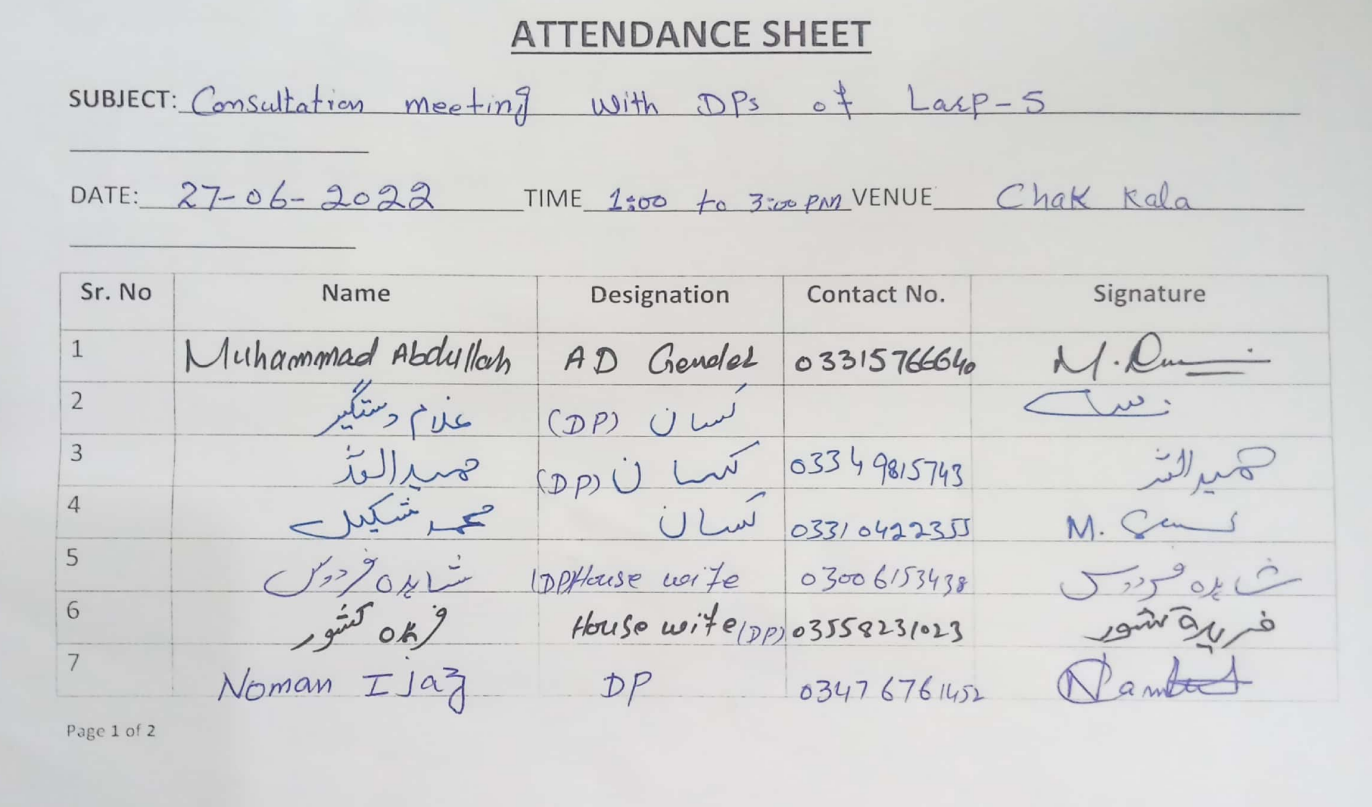 ATTENDANCE SHEET
SUBJECT: Consultation meeting with DPs of Larp-5
DATE: 27-06-2022 TIME 1:00 to 3:00 PM VENUE Chak Kala
Sr. No Name Designation Contact No. Signature
1 Muhammad Abdullah AD Gender 03315766640 M.
2 غلام دستگیر کسان (DP)
3 حمید اللہ کسان (DP) 03349815743 حمید اللہ
4 محمد شکیل کسان 03310422355 M.
5 شاہدہ فردوس (DP) House wife 03006153438 شاہدہ فردوس
6 کشور House wife (DP) 03558231023 کشور
7 Noman Ijaz DP 03476761452
Page 1 of 2